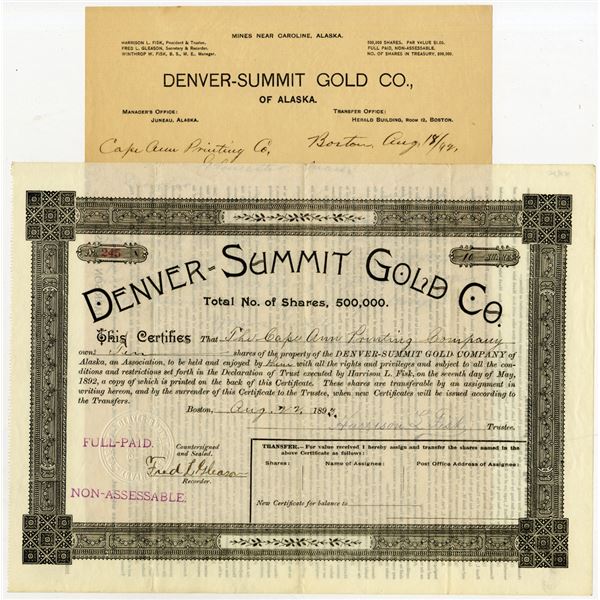 MINES NEAR CAROLINE, ALASKA.
HARRISON L. FISK, President & Trustee.
FRED L. GLEASON, Secretary & Recorder.
WINTHROP W. FISK, B. S., M. E., Manager.
500,000 SHARES. PAR VALUE $1.00.
FULL PAID, NON-ASSESSABLE.
NO. OF SHARES IN TREASURY, 200,000.
DENVER-SUMMIT GOLD CO.,
OF ALASKA.
MANAGER'S OFFICE:
JUNEAU, ALASKA.
TRANSFER OFFICE:
HERALD BUILDING, ROOM 12, BOSTON.
Cape Ann Printing Co,
Boston, Aug 18/92,
245
10
DENVER-SUMMIT GOLD CO.
Total No. of Shares, 500,000.
This Certifies That The Cape Ann Printing Company
own Ten shares of the property of the DENVER-SUMMIT GOLD COMPANY of
Alaska, an Association, to be held and enjoyed by with all the rights and privileges and subject to all the con-
ditions and restrictions set forth in the Declaration of Trust executed by Harrison L. Fisk, on the seventh day of May,
1892, a copy of which is printed on the back of this Certificate. These shares are transferable by an assignment in
writing hereon, and by the surrender of this Certificate to the Trustee, when new Certificates will be issued according to
the Transfers.
Boston, Aug. 22, 1892
Harrison L. Fisk, Trustee.
FULL-PAID.
NON-ASSESSABLE.
Countersigned
and Sealed.
Fred L. Gleason
Recorder.
TRANSFER.- For value received I hereby assign and transfer the shares named in the
above Certificate as follows:
Shares: Name of Assignee: Post Office Address of Assignee:
New Certificate for balance to